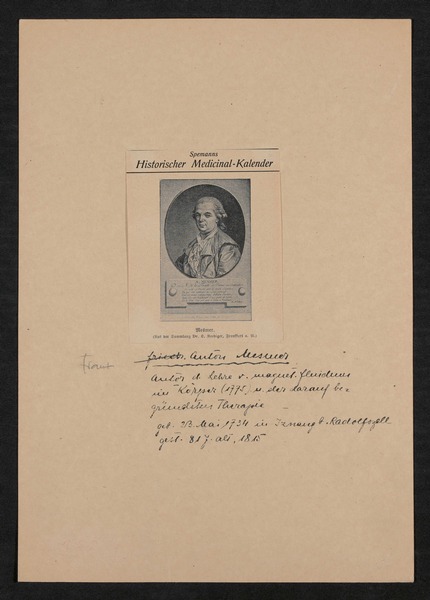 Spemanns
Historischer Medicinal-Kalender
Mesmer.
Franz
friedr. Anton Mesmer
Autor d. Lehre v. magnet. fluidums
im Körper (1775) u. der darauf be-
gründeten Therapie
geb. 23. Mai 1734 in Iznang b. Radolfszell
gest. 81 J. alt, 1815